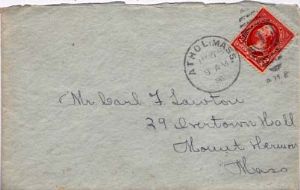 ATHOL, MASS.
9 AM
Mr Carl F Lawton
29 Overtown Hall
Mount Hermon
Mass